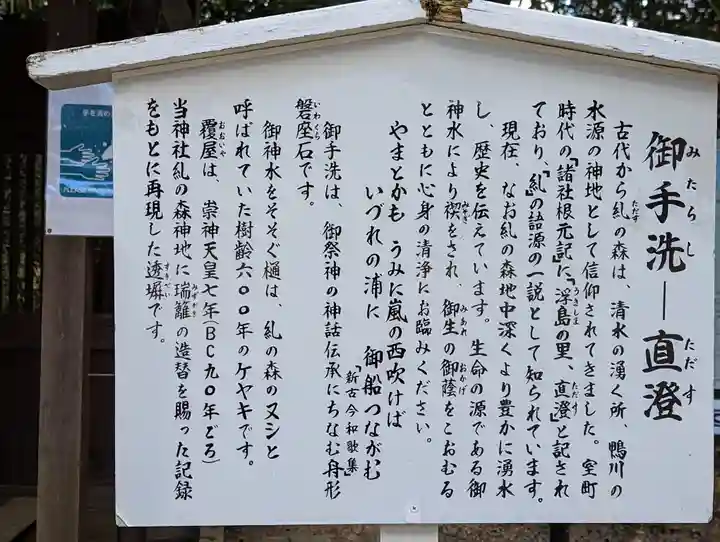 御手洗―直澄
みたらし ただす
古代から糺の森は、清水の湧く所、鴨川の
ただす
水源の神地として信仰されてきました。室町
時代の『諸社根元記』に『浮島の里、直澄』と記され
うきしま ただす
ており、『糺』の語源の一説として知られています。
現在、なお糺の森地中深くより豊かに湧水
し、歴史を伝えています。生命の源である御
神水により禊をされ、御生の御蔭をこおむる
みそぎ みあれ おかげ
とともに心身の清浄にお臨みください。
やまとかも うみに嵐の西吹けば
いづれの浦に 御船つながむ
「新古今和歌集」
御手洗は、御祭神の神話伝承にちなむ舟形
磐座石です。
いわくら
御神水をそそぐ樋は、糺の森のヌシと
呼ばれていた樹齢六〇〇年のケヤキです。
覆屋は、崇神天皇七年(BC九〇年ごろ)
おおいや
当神社糺の森神地に瑞籬の造替を賜った記録
みずがき
をもとに再現した透塀です。
すきべい
手を清め
PLEASE